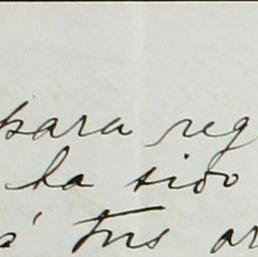 para reg
ha sido
tus ar